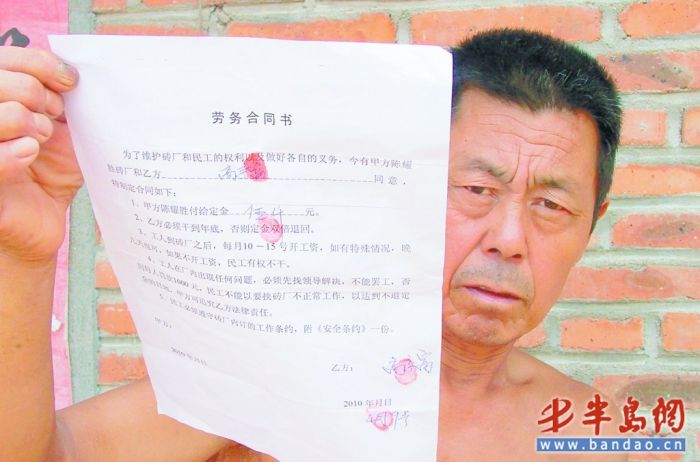 劳务合同书
为了维护砖厂和民工的权利以及做好各自的义务，今有甲方陈耀
胜砖厂和乙方 同意，
特别定合同如下：
1、甲方陈耀胜付给定金 伍仟 元。
2、乙方必须干到年底，否则定金双倍退回。
3、工人到砖厂之后，每月10－15号开工资，如有特殊情况，晚
几天也可，如果不开工资，民工有权不干。
4、工人在厂内出现任何问题，必须先找领导解决，不能罢工，否
则每人罚款1000元，民工不能以要挟砖厂不正常工作，以达到不道定
金的目的，甲方可追究乙方法律责任。
5、民工必须遵守砖厂内订的工作条约，附《安全条约》一份。
甲方：
2010年月日
乙方：
2010年月日
半岛網
www.bandao.cn